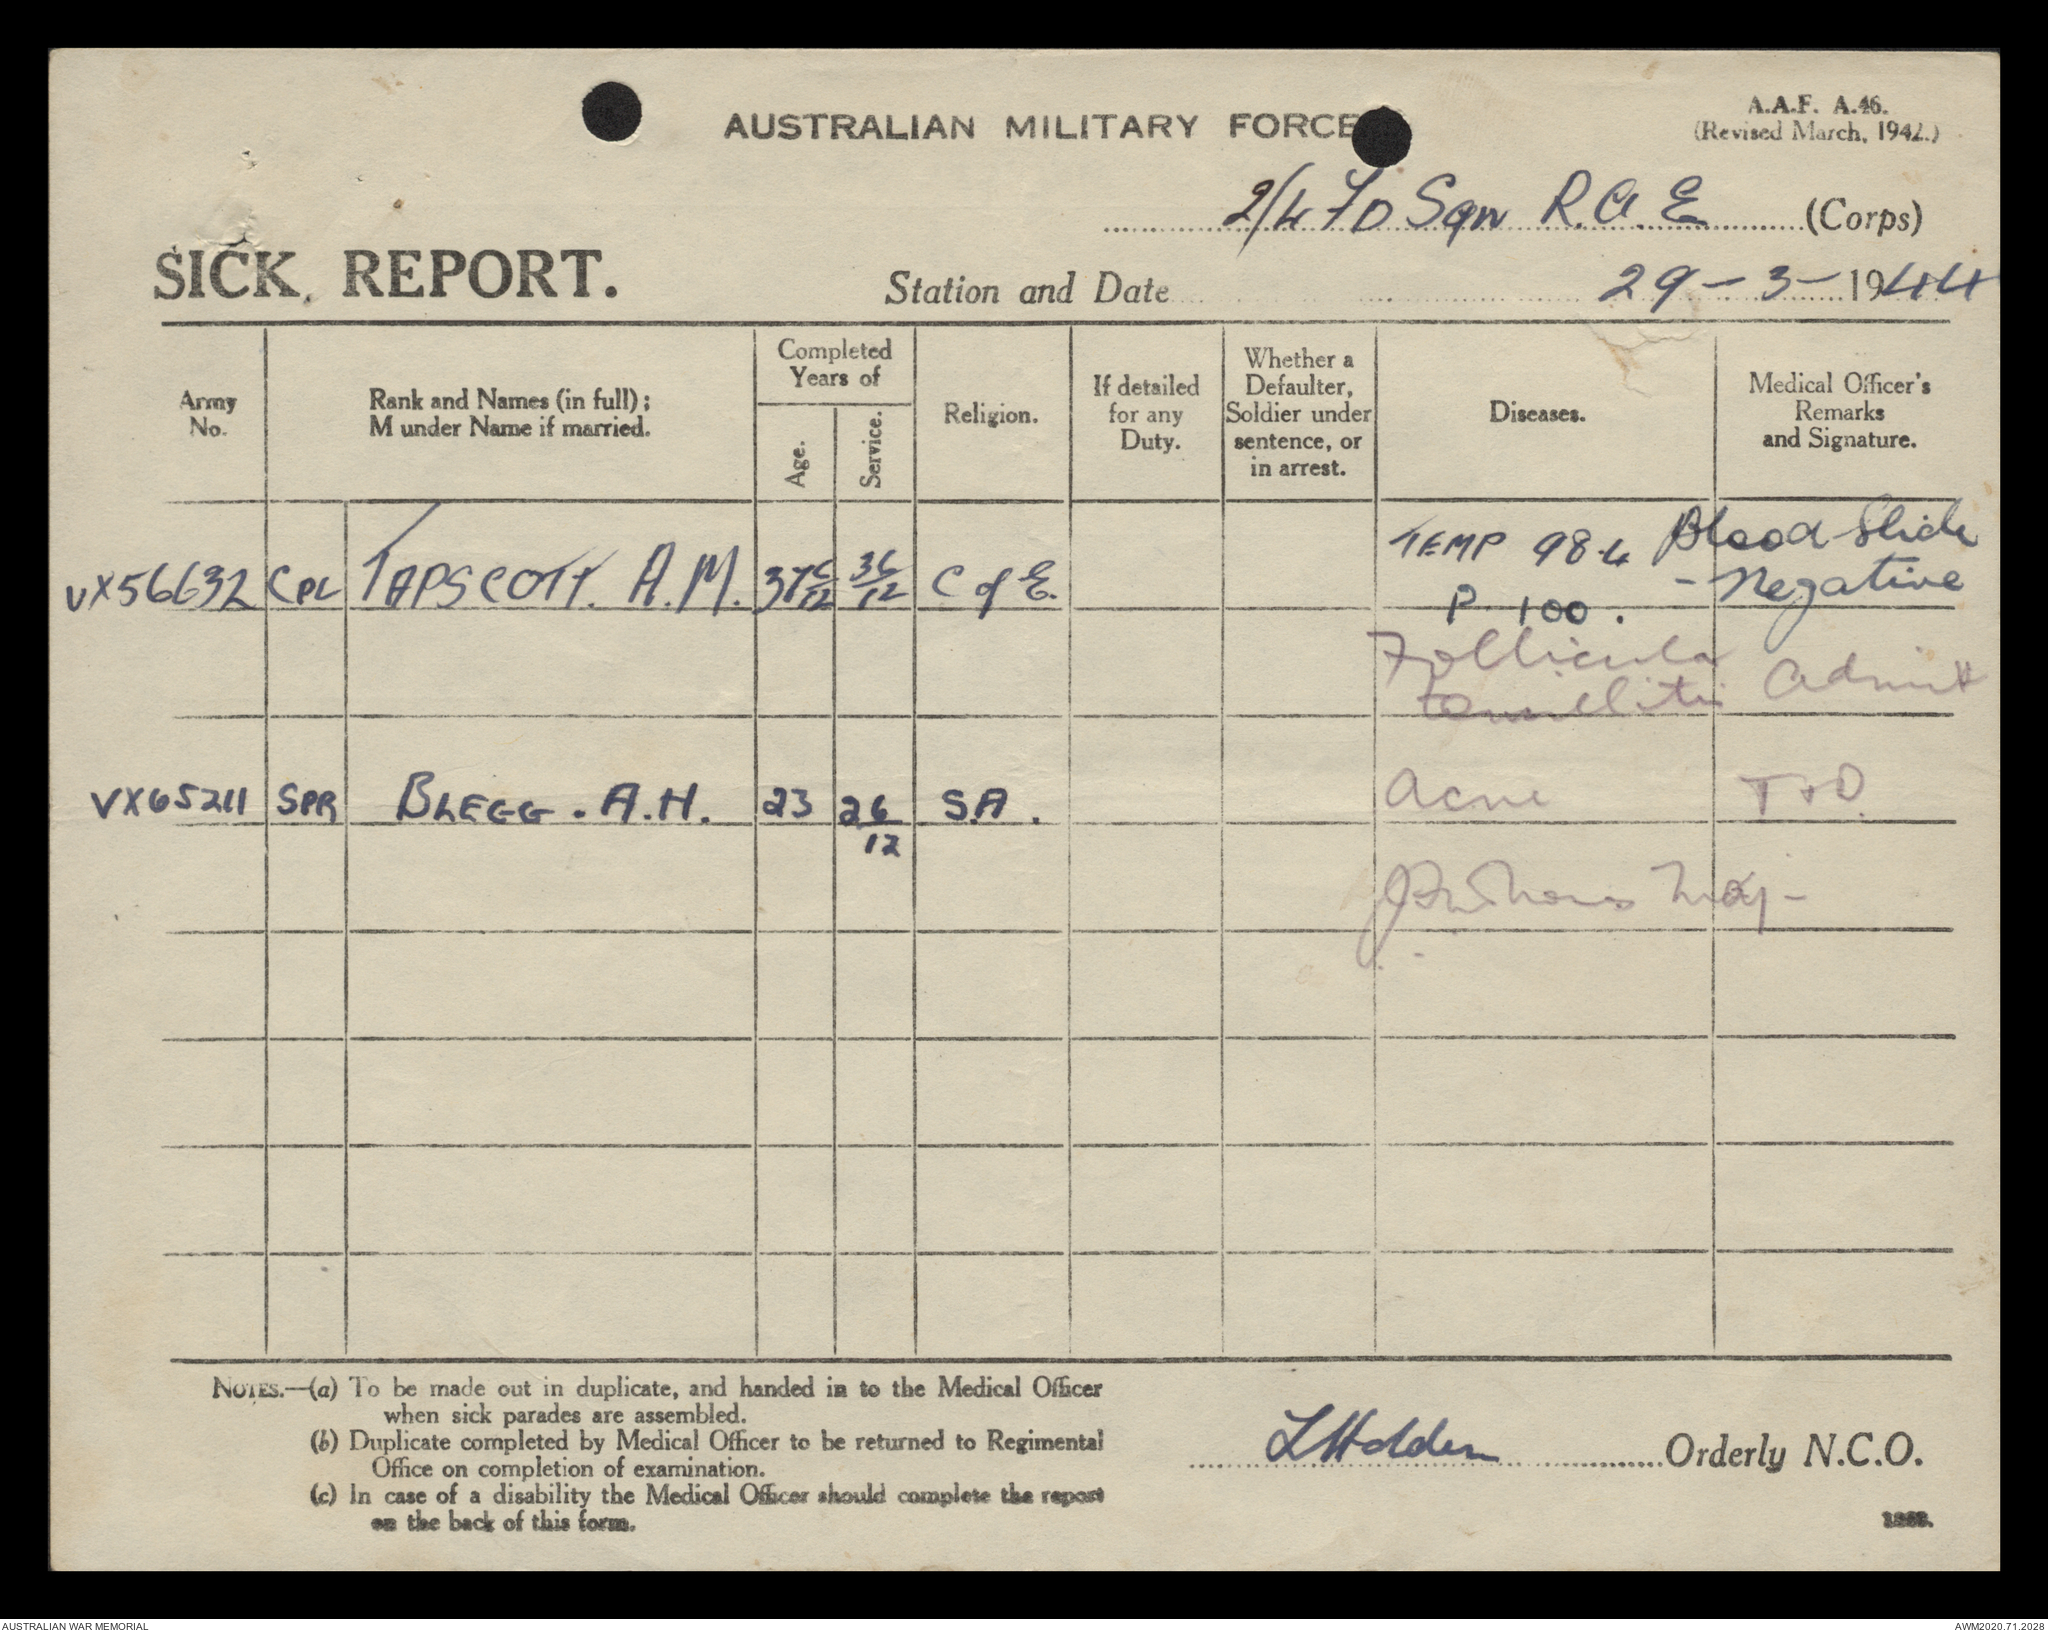 AUSTRALIAN MILITARY FORCE
A.A.F. A.46.
(Revised March, 1942.)
2/4 FD Sqn R.A.E (Corps)
SICK REPORT.
Station and Date 29-3-1944
Army No.
Rank and Names (in full);
M under Name if married.
Completed Years of
Age.
Service.
Religion.
If detailed for any Duty.
Whether a Defaulter, Soldier under sentence, or in arrest.
Diseases.
Medical Officer's Remarks and Signature.
VX56632 CPL TAPSCOTT. A.M. 37 6/12 36/12 C of E. TEMP 98.4 Blood Slide
P 100. - Negative
Follicular Admit
tonsillitis
VX65211 SPR BLEGG. A.H. 23 26/12 S.A. Acne T+D.
Maj-
NOTES.—(a) To be made out in duplicate, and handed in to the Medical Officer
when sick parades are assembled.
(b) Duplicate completed by Medical Officer to be returned to Regimental
Office on completion of examination.
(c) In case of a disability the Medical Officer should complete the report
on the back of this form.
LHolden Orderly N.C.O.
AUSTRALIAN WAR MEMORIAL
AWM2020.71.2028